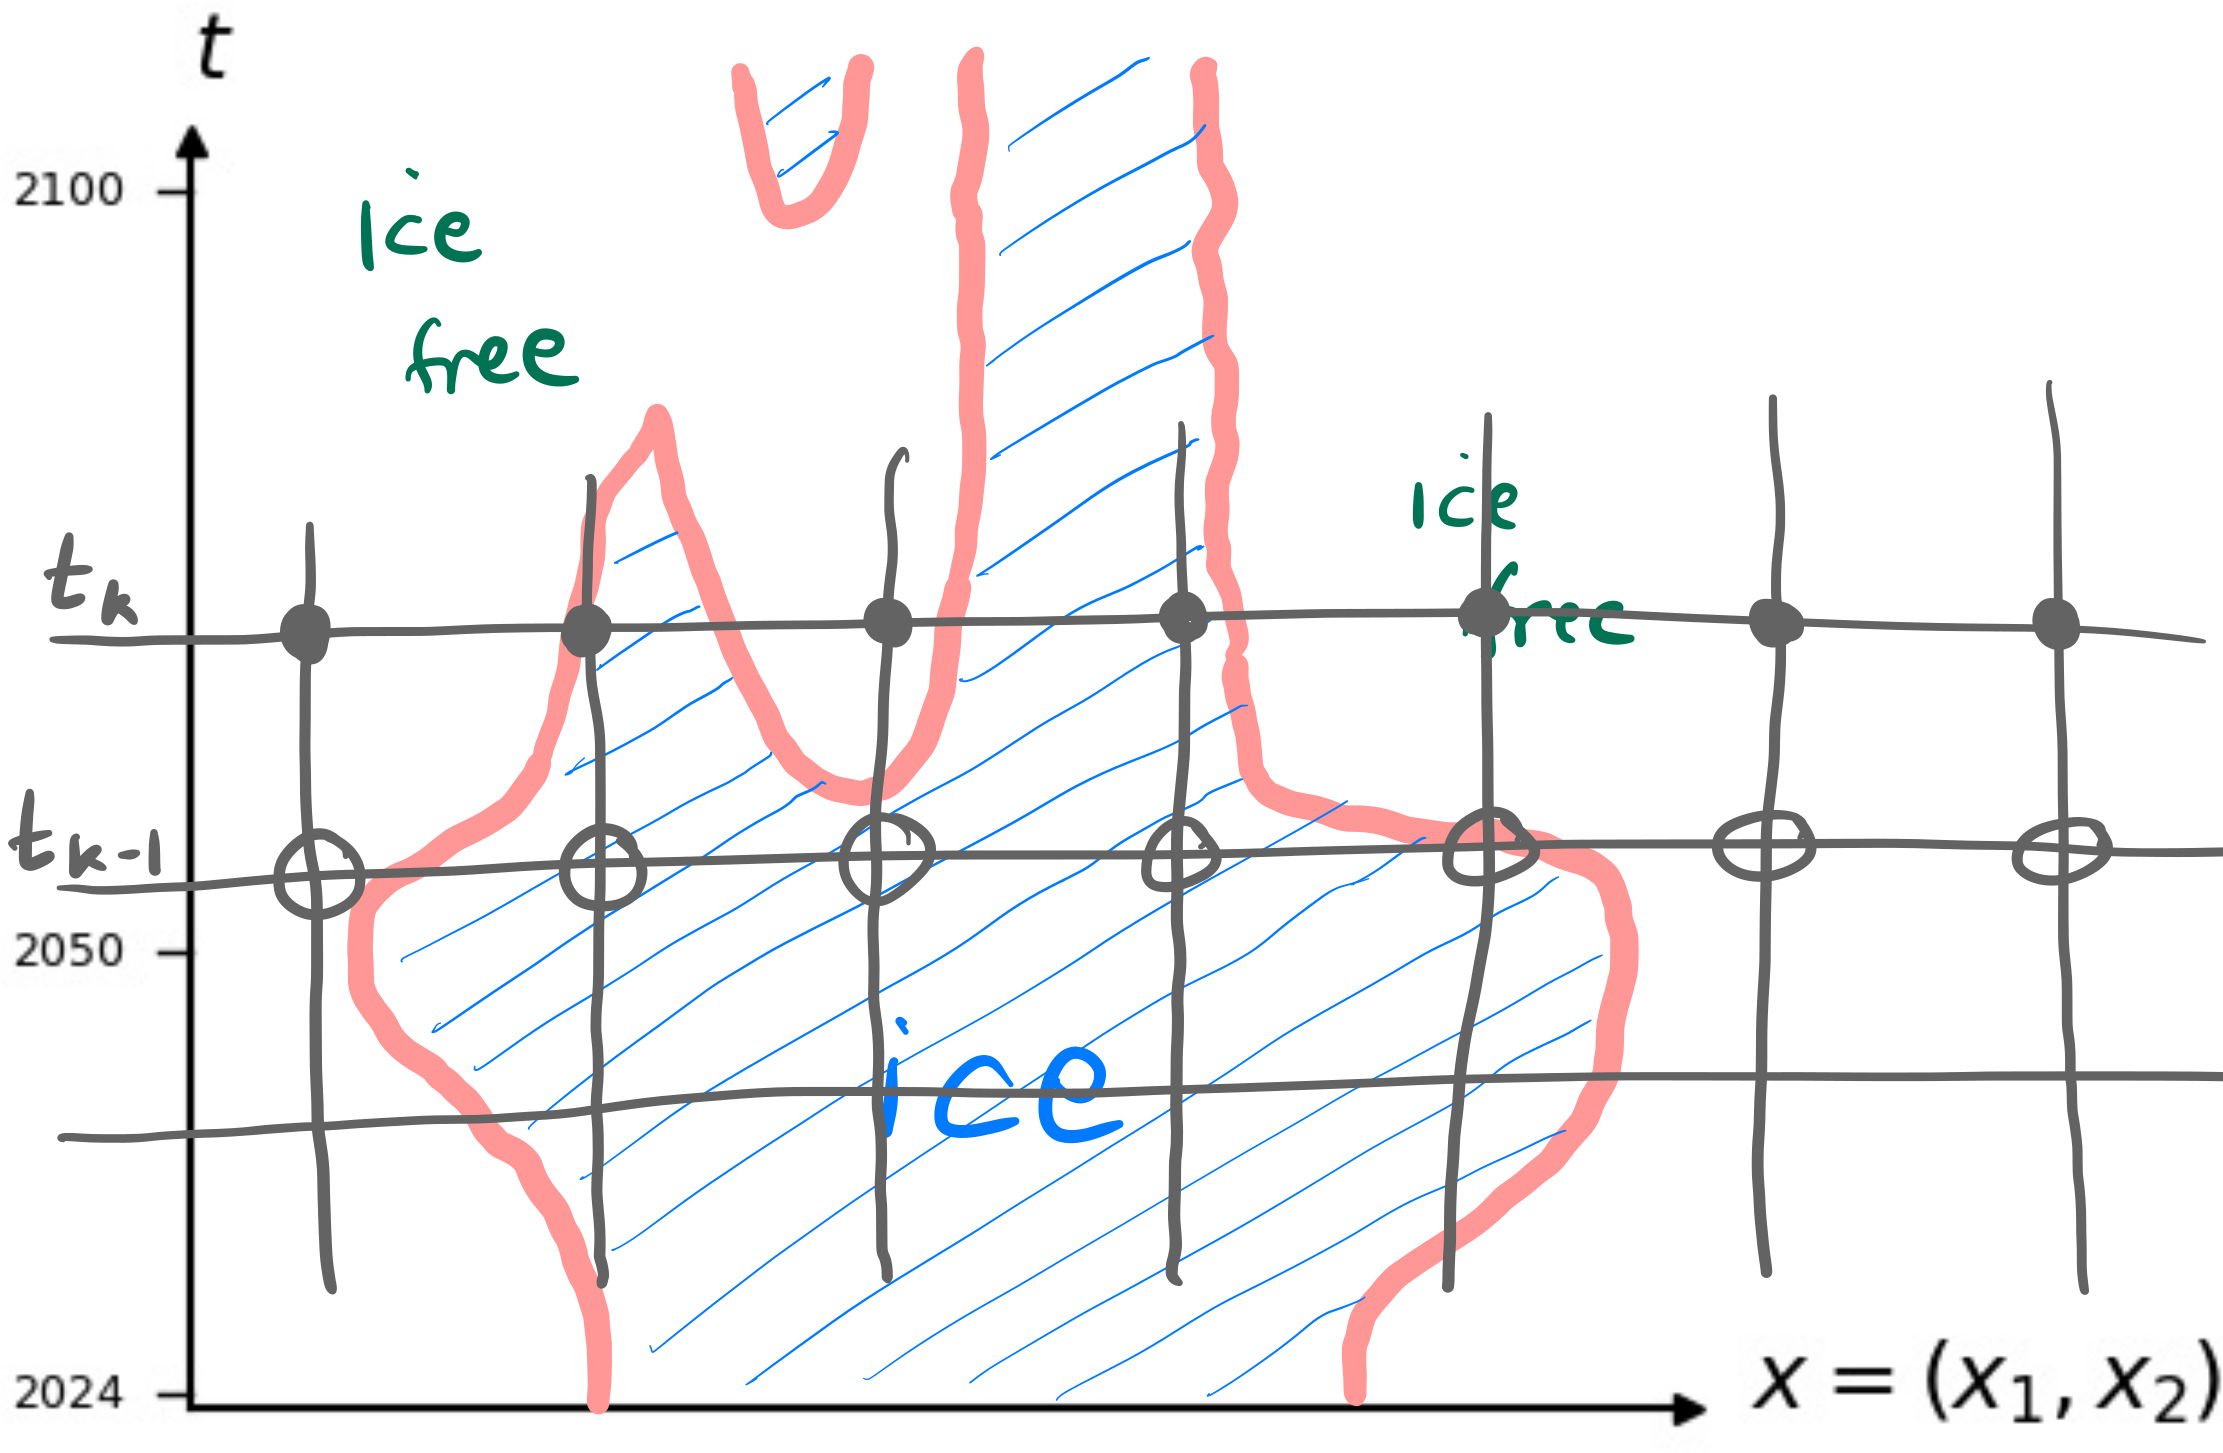 t
2100
ice
free
ice
free
t_k
t_{k-1}
2050
ice
2024
x = (x₁, x₂)